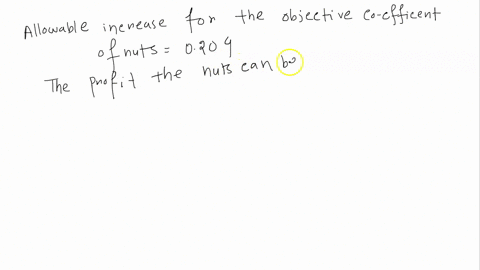 Allowable increase for the objective co-efficent
of nuts = 0.204
The profit the nuts can be